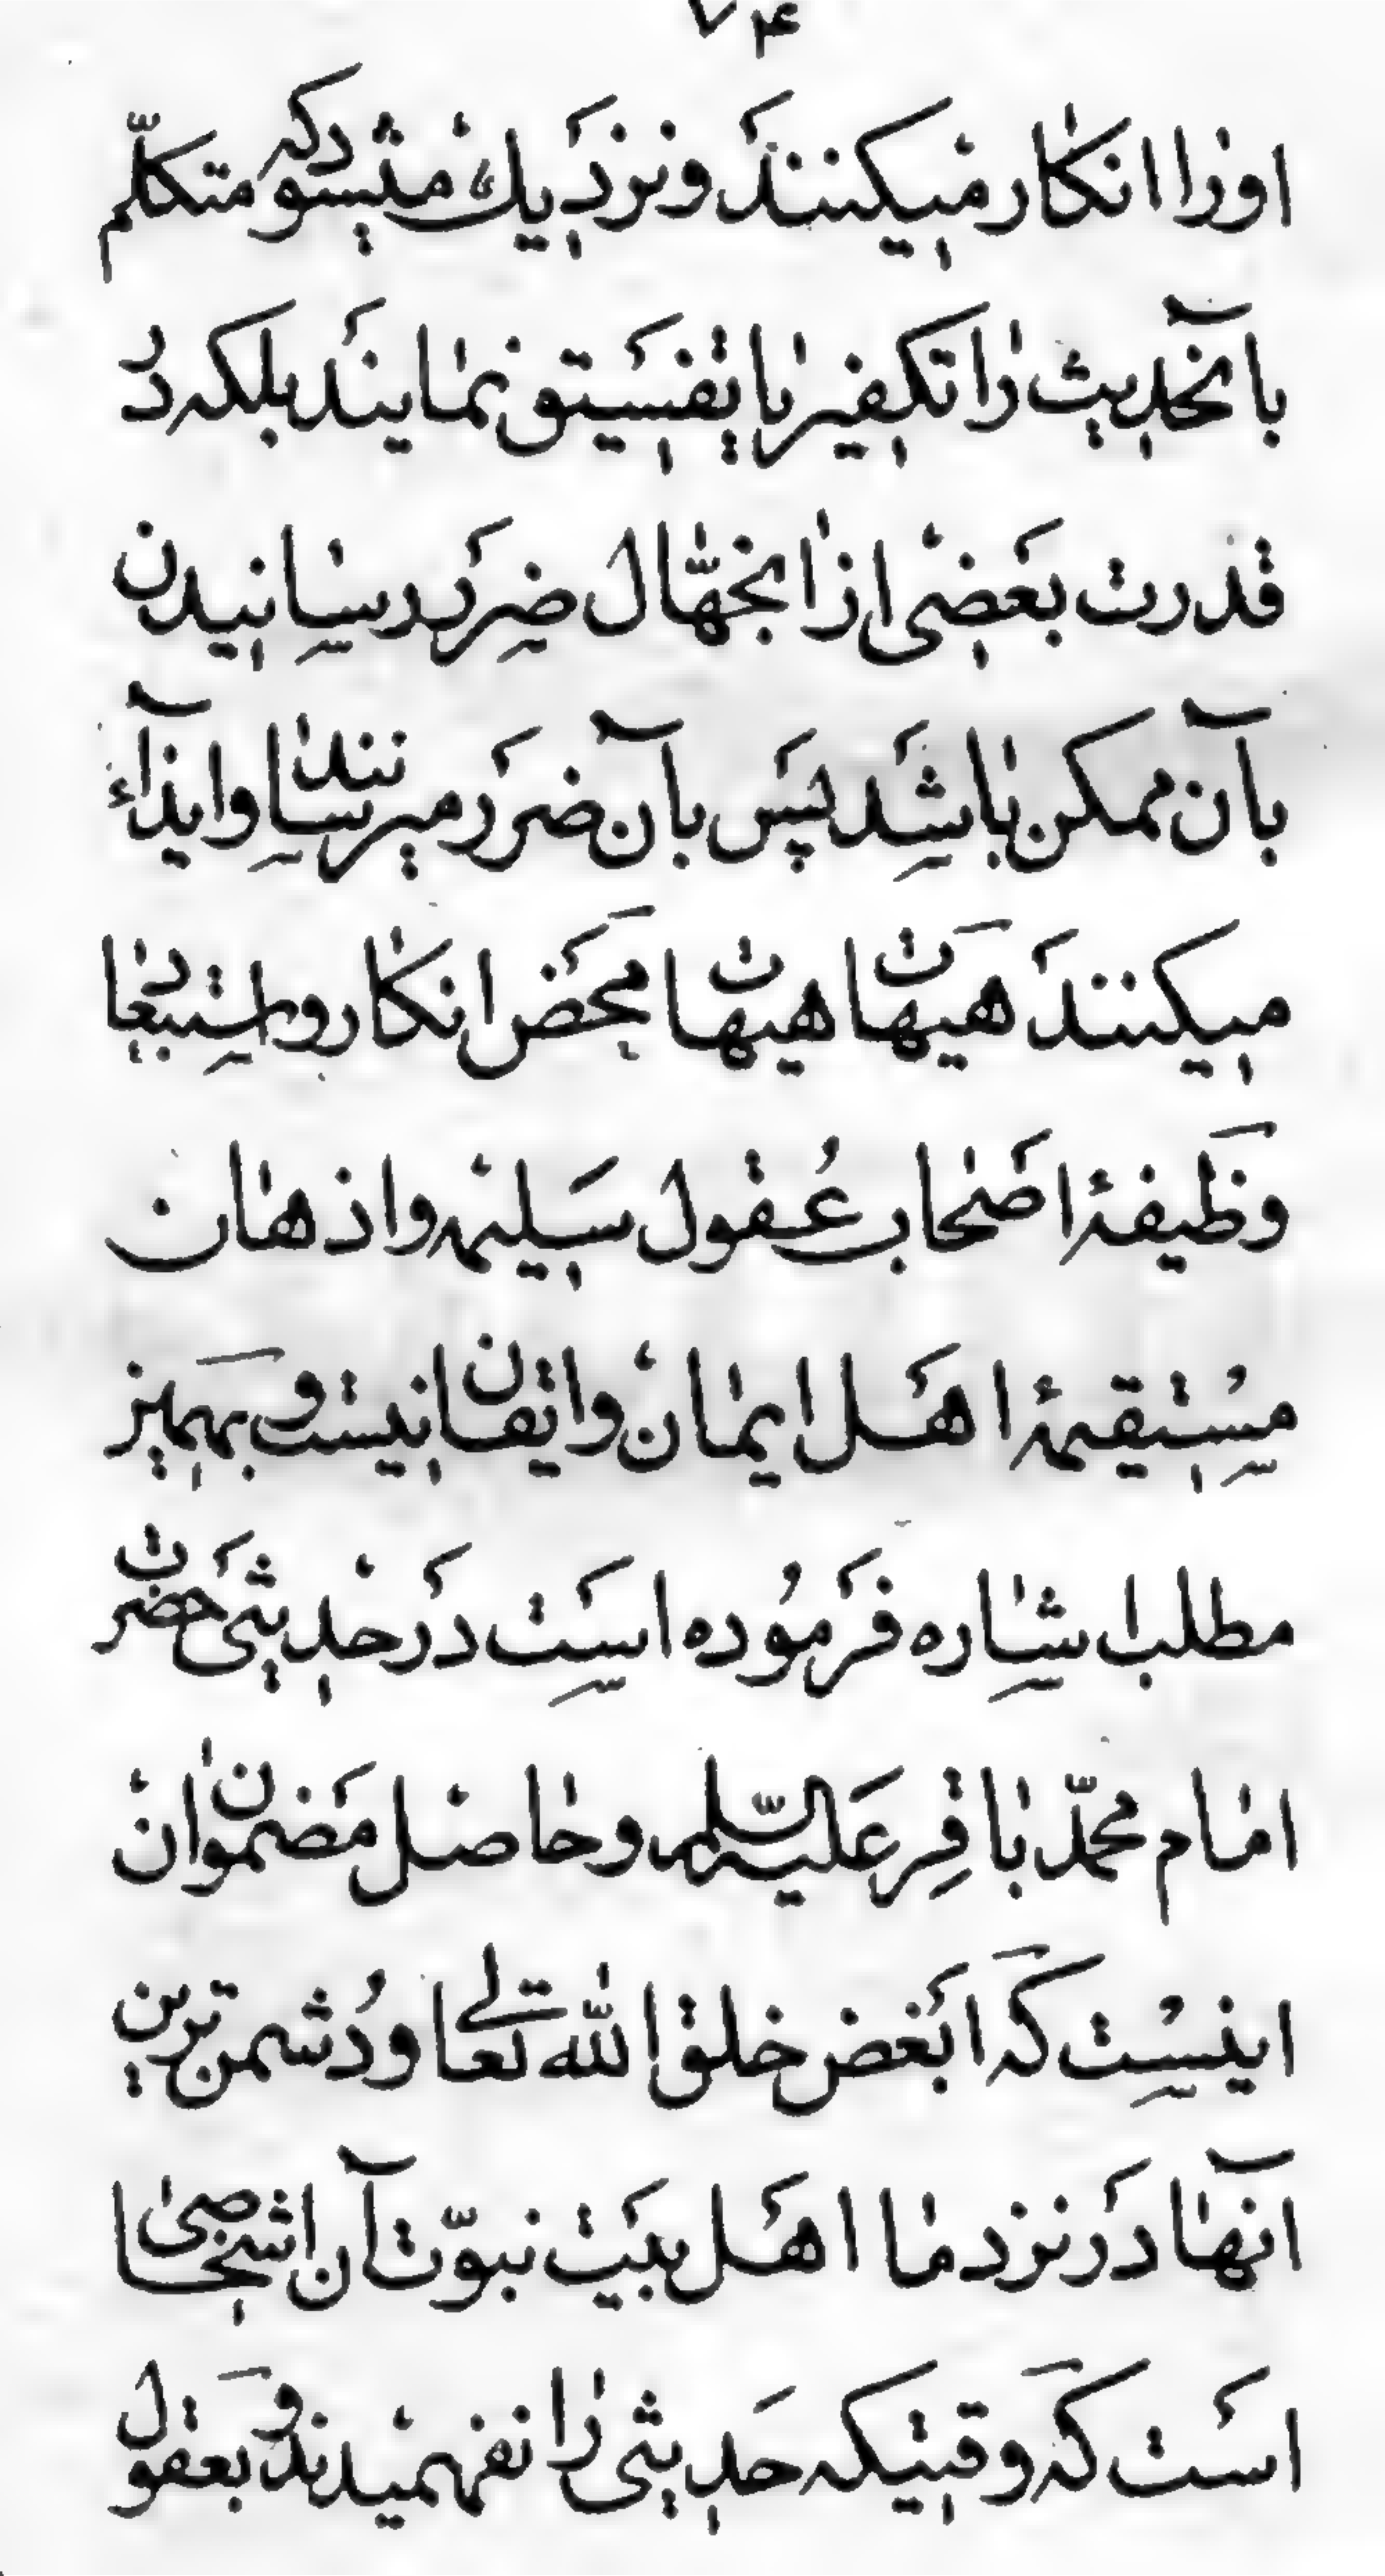 ۷۴
اورا انکار میکنند و نزدیک میشود که متکلّم
بآنحدیث را تکفیر یا تفسیق نمایند بلکه در
قدرت بعضی از انجهّال ضرر رسانیدن
بآن ممکن باشد پس بآن ضرر میرسانند و ایذآء
میکنند هیهات هیهات محض انکار و استبعاد
وظیفهٔ اصحاب عُقول سلیمه و اذهان
مستقیمهٔ اهل ایمان و اتقان نیست و بهمین
مطلب اشاره فرمُوده است در حدیثی حضرت
امام محمّد باقر علیه السّلم و حاصل مضمون ان
اینست که ابغض خلق الله تعالی و دُشمن ترین
آنها در نزد ما اهل بیت نبوّت آن اشخاصی
است که وقتیکه حدیثی را نفهمیدند و بعقول